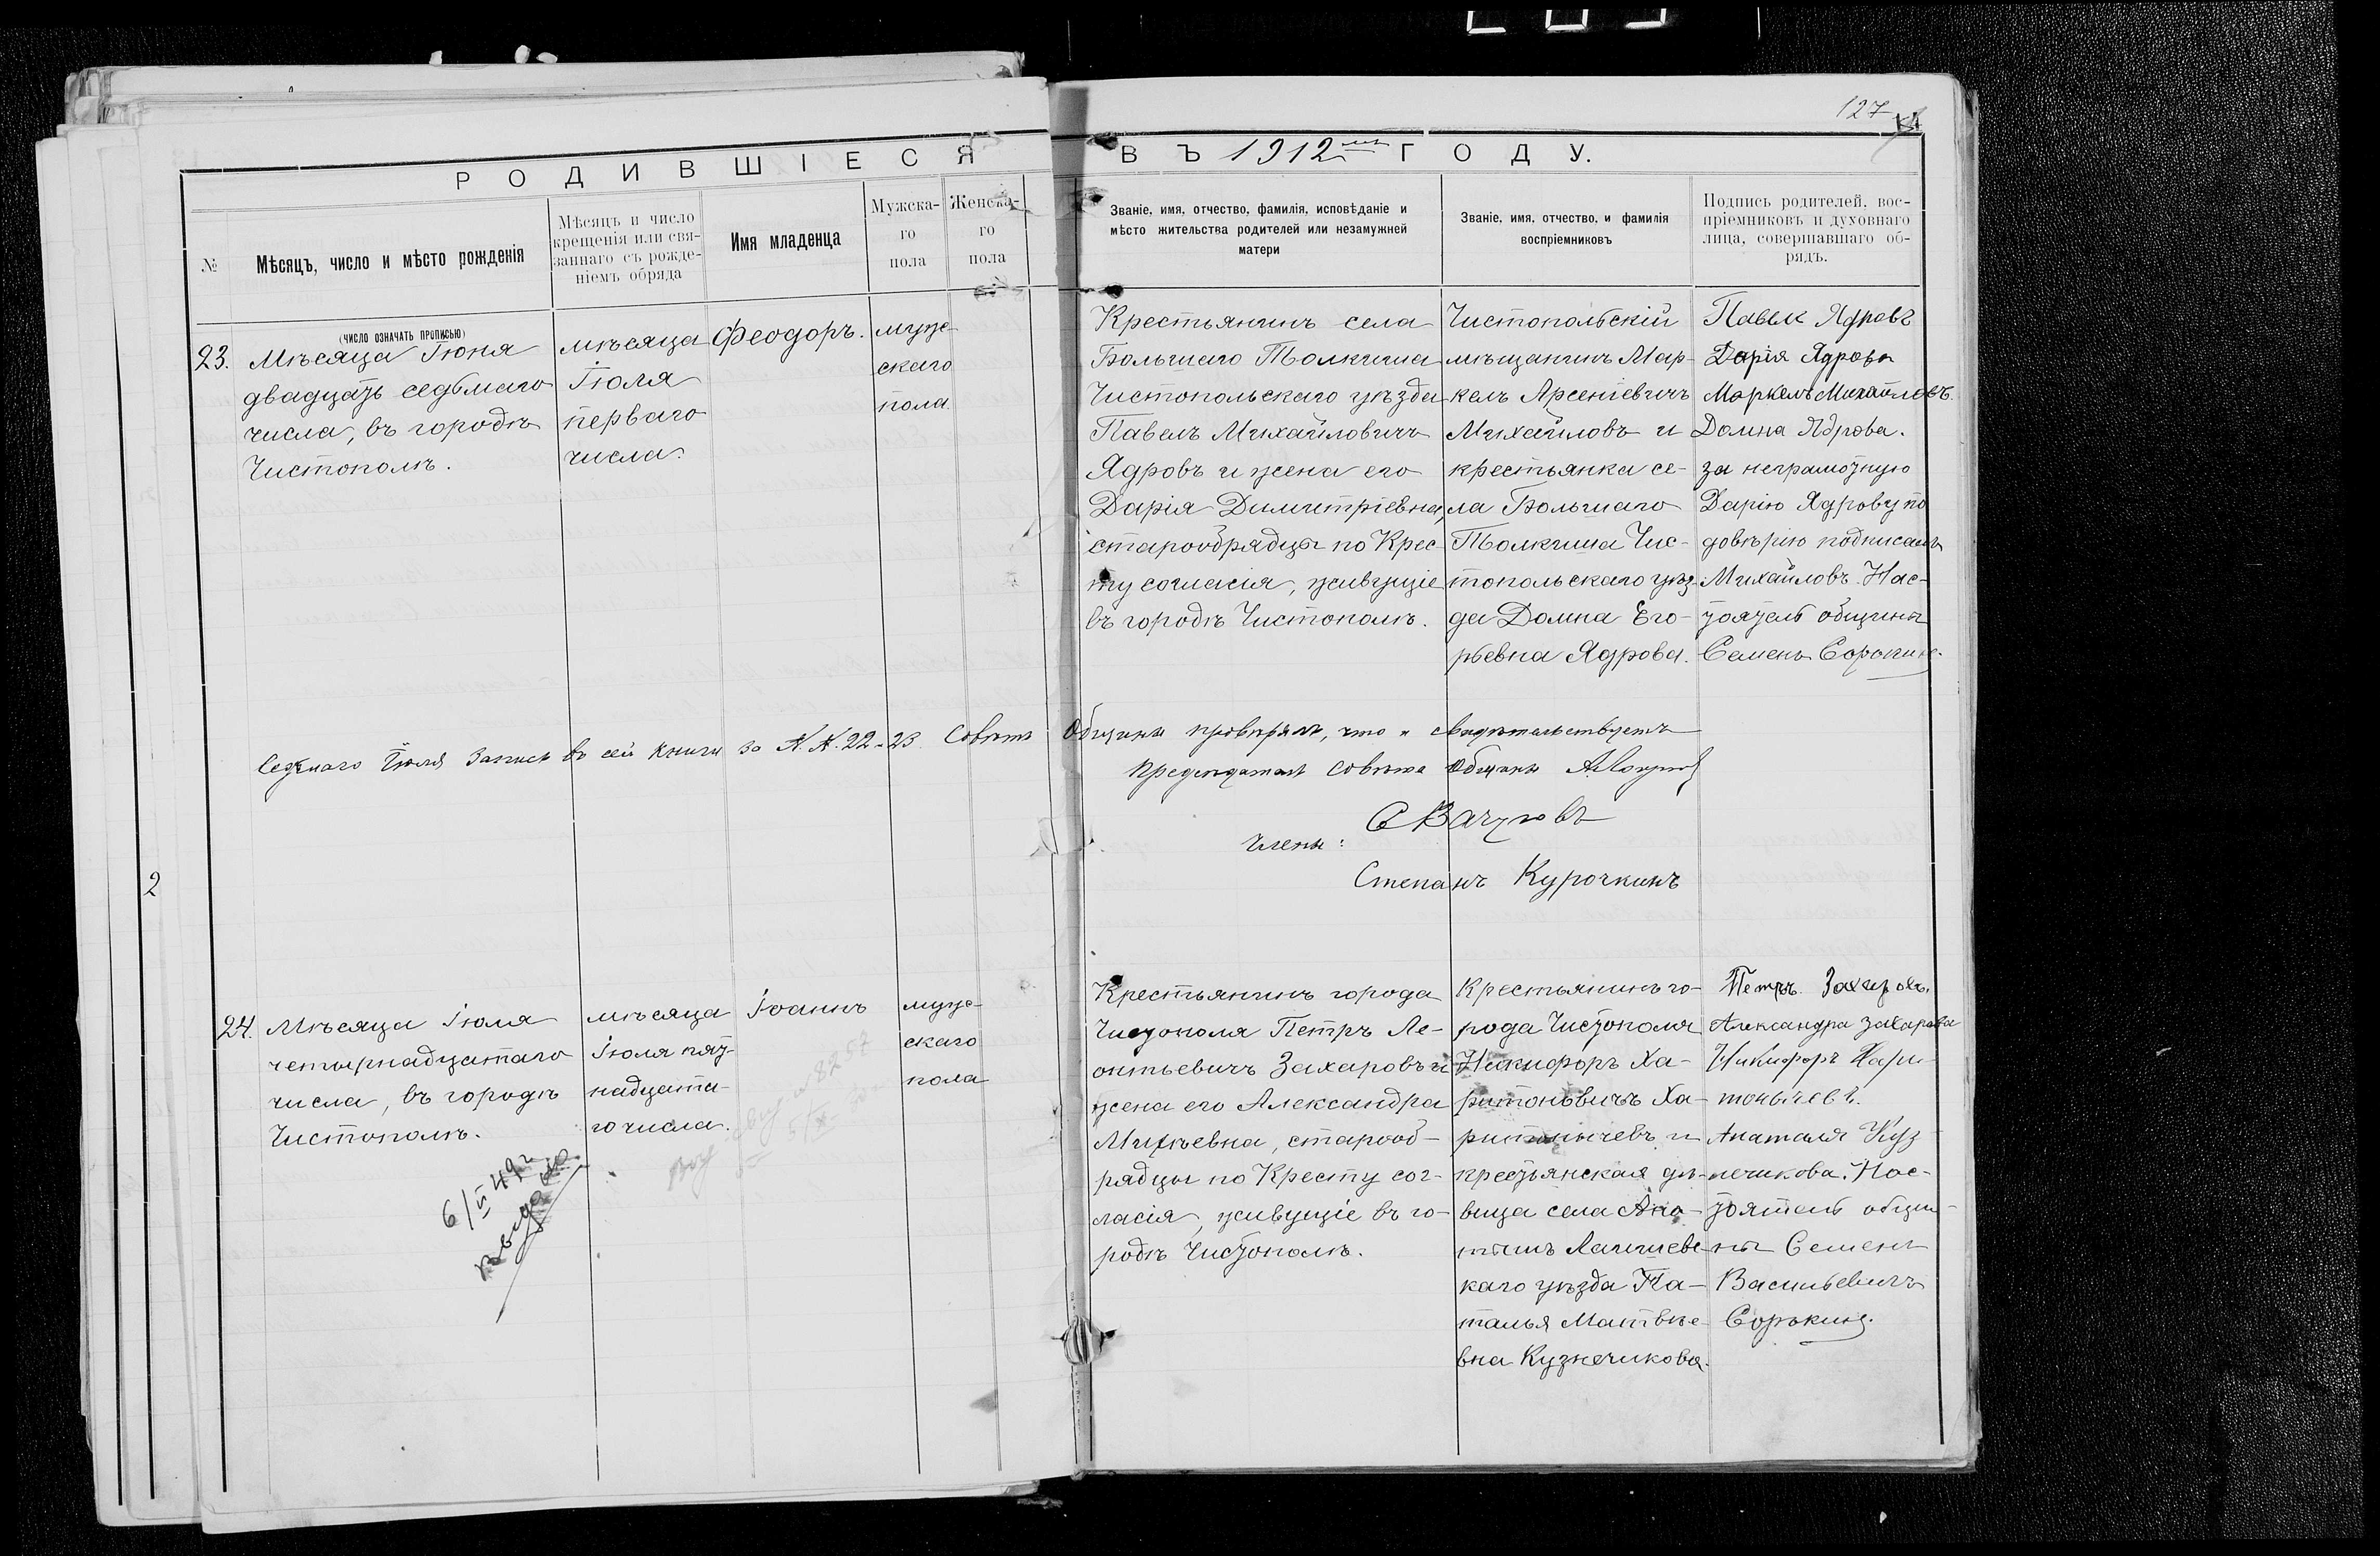 127
РОДИВШІЕСЯ ВЪ 1912мъ ГОДУ.
№
Мѣсяцъ, число и мѣсто рожденія
Мѣсяцъ и число
крещенія или свя-
заннаго съ рожде-
ніемъ обряда
Имя младенца
Мужска-
го
пола
Женска-
го
пола
Званіе, имя, отчество, фамилія, исповѣданіе и
мѣсто жительства родителей или незамужней
матери
Званіе, имя, отчество, и фамилія
воспріемниковъ
Подпись родителей, вос-
пріемниковъ и духовнаго
лица, совершавшаго об-
рядъ.
(ЧИСЛО ОЗНАЧАТЬ ПРОПИСЬЮ)
23.
Мѣсяца Іюня
двадцать седьмаго
числа, въ городѣ
Чистополѣ.
мѣсяца
Іюля
перваго
числа.
Феодоръ.
муже-
скаго
пола
Крестьянинъ села
Большаго Толкиша
Чистопольскаго уѣзда
Павелъ Михайловичъ
Ядровъ и жена его
Дарія Димитріевна,
старообрядцы по Крес-
ту согласія, живущіе
въ городѣ Чистополѣ.
Чистопольскій
мѣщанинъ Мар-
келъ Арсеніевичъ
Михайловъ и
крестьянка се-
ла Большаго
Толкиша Чис-
топольскаго уѣз-
да Домна Его-
рьевна Ядрова.
Павелъ Ядровъ
Дарія Ядрова
Маркелъ Михайловъ.
Домна Ядрова.
за неграмотную
Дарію Ядрову по
довѣрію подписалъ
Михайловъ. Нас-
тоятель общины
Семенъ Сорокинъ.
Седьмаго Іюля Запись въ сей книги за N. N. 22-23. Совѣтъ Общины провѣрялъ, что и свидѣтельствуетъ
Предсѣдатель Совѣта Общины
Члены:
Степанъ Курочкинъ
2
24.
Мѣсяца Іюля
четырнадцатаго
числа, въ городѣ
Чистополѣ.
мѣсяца
Іюля пят-
надцата-
го числа.
Іоаннъ
муже-
скаго
пола
Крестьянинъ города
Чистополя Петръ Ле-
онтьевичъ Захаровъ и
жена его Александра
Михѣевна, старооб-
рядцы по Кресту сог-
ласія, живущіе въ го-
родѣ Чистополѣ.
Крестьянинъ го-
рода Чистополя
Никифоръ Ха-
ритоновичъ Ха-
ритонычевъ и
крестьянская дѣ-
вица села
Лаишевс-
каго уѣзда На-
талья Матвѣе-
вна Кузнечикова.
Петръ Захаровъ.
Александра Захарова
Никифоръ Хари-
тонычевъ.
Анаталя Куз-
нечикова. Нас-
тоятель общи-
ны Семенъ
Васильевичъ
Сорокинъ.